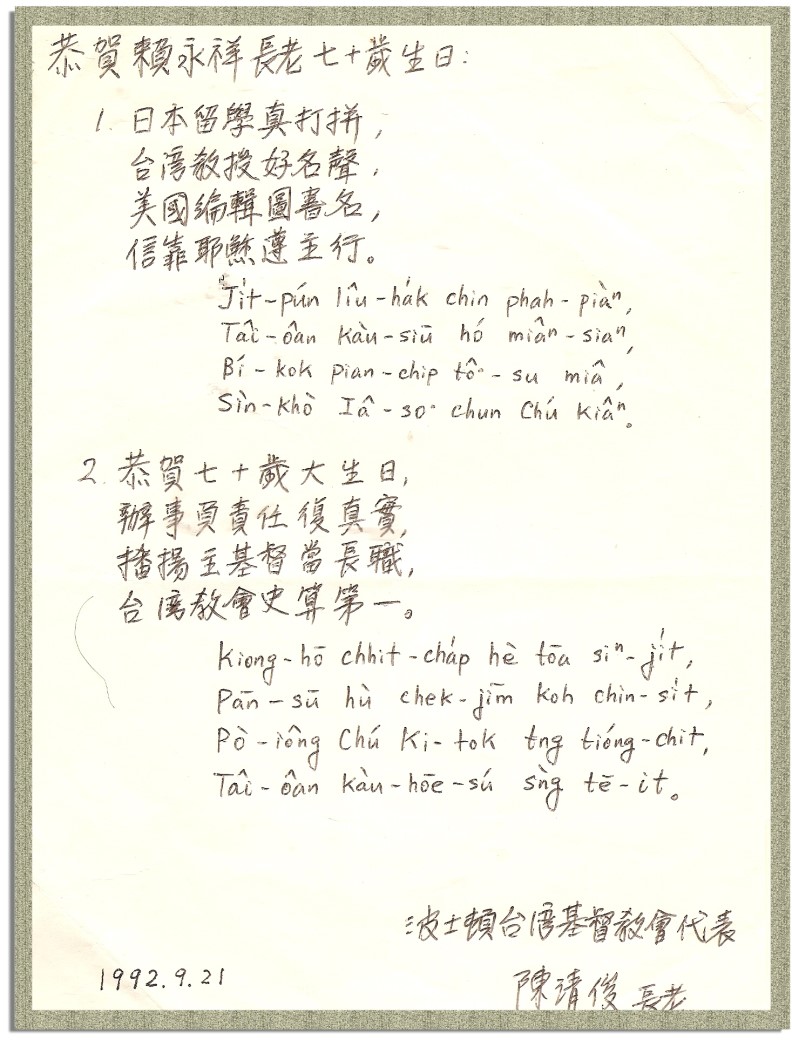 恭賀賴永祥長老七十歲生日:
1. 日本留學真打拼,
台湾教授好名聲,
美國編輯圖書名,
信靠耶穌遵主行。
Ji̍t-pún liû-ha̍k chin phah-piàⁿ,
Tâi-oân kàu-siū hó miâⁿ-siaⁿ,
Bí-kok pian-chip tô͘-su miâ,
Sìn-khò Iâ-so͘ chun Chú kiâⁿ。
2. 恭賀七十歲大生日,
辦事負責任復真實,
播揚主基督當長職,
台湾教會史算第一。
Kiong-hō chhit-cha̍p hè tōa siⁿ-ji̍t,
Pān-sū hù chek-jīm koh chin-si̍t,
Pò-iông Chú Ki-tok tng tióng-chit,
Tâi-oân kàu-hōe-sú sǹg tē-it。
波士頓台湾基督教會代表
1992.9.21
陳靖俊 長老